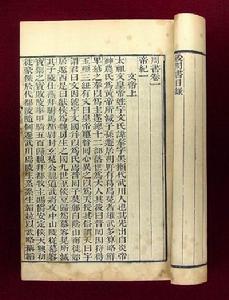 周書目錄
周書卷一
帝紀一
文帝上
太祖文皇帝姓宇文氏諱泰字黑獺代武川人也其先出自炎帝
神農氏為黃帝所滅子孫遯居朔野有葛烏菟者雄武多算略鮮
卑慕之奉以為主遂總十二部落世為大人其後曰普回因狩得
玉璽三紐有文曰皇帝璽普回心異之以為天授其俗謂天曰宇
謂君曰文因號宇文國并以為氏焉普回子莫那自陰山南徙始
居遼西是曰獻侯為魏舅生之國九世至侯豆歸為慕容晃所滅
其子陵仕燕拜駙馬都尉封玄菟公魏道武將攻中山陵從慕容
寶禦之寶敗陵率甲騎五百歸魏拜都牧主賜爵安定侯天興初
徙豪傑於代都陵隨例遷武川焉陵生系系生韜並以武略稱韜